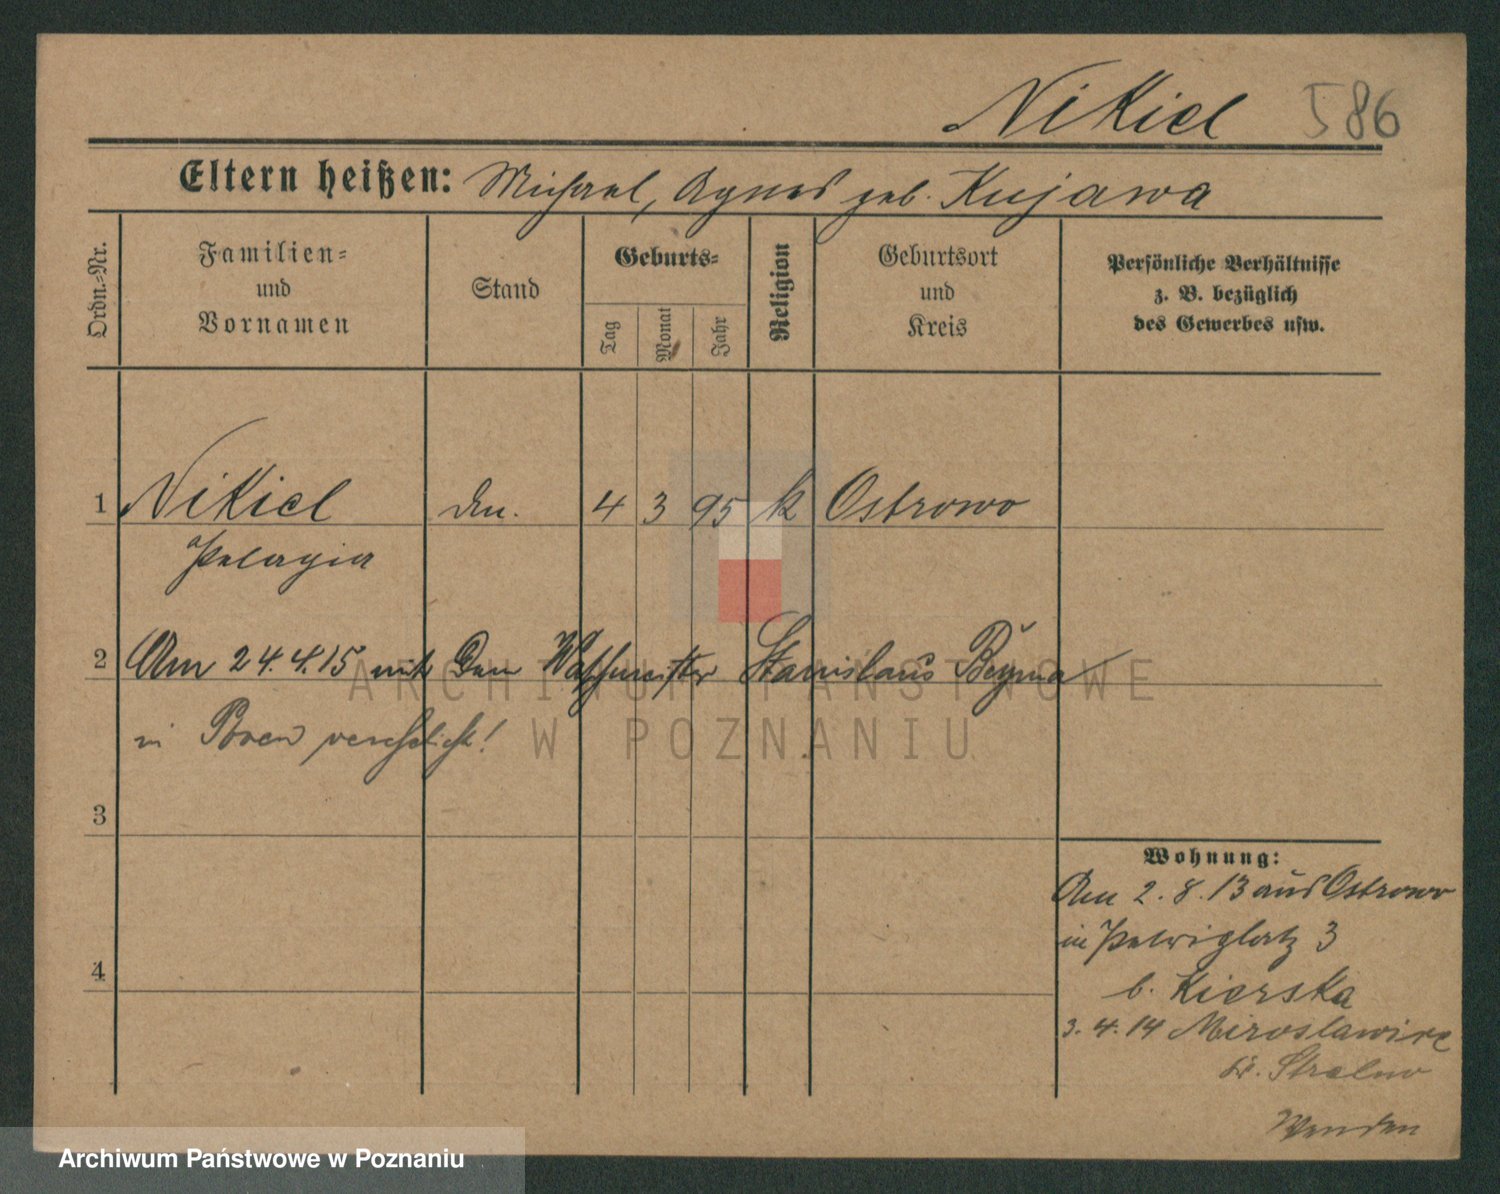 Nikiel 586
Eltern heißen: Michael, Agnes geb. Kujawa
Ordn.-Nr.
Familien=
und
Vornamen
Stand
Geburts=
Tag
Monat
Jahr
Religion
Geburtsort
und
Kreis
Persönliche Verhältnisse
z. B. bezüglich
des Gewerbes usw.
1 Nikiel 4 3 95 k Ostrowo
Pelagia
2 Am 24.4.15 mit dem Stanislaus Beyma
in Posen verehelicht!
3
4
Wohnung:
Am 2.8.13 aus Ostrowo
in Petriplatz 3
b. Kierska
3.4.14 Miroslawice
Kr. Strelno
Wenden
ARCHIWUM PAŃSTWOWE
W POZNANIU
Archiwum Państwowe w Poznaniu